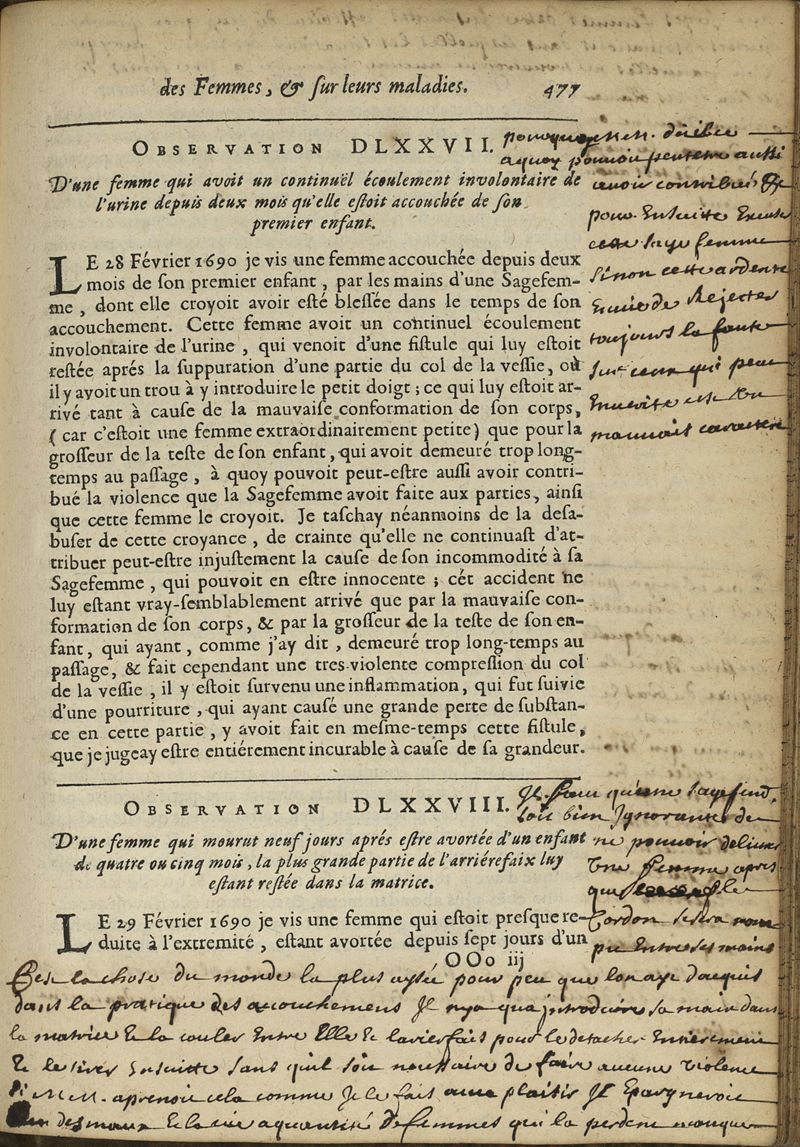 des Femmes, & sur leurs maladies. 477
OBSERVATION DLXXVII.
D'une femme qui avoit un continuël écoulement involontaire de
l'urine depuis deux mois qu'elle estoit accouchée de son
premier enfant.
LE 28 Février 1690 je vis une femme accouchée depuis deux
mois de son premier enfant, par les mains d'une Sagefem-
me, dont elle croyoit avoir esté blessée dans le temps de son
accouchement. Cette femme avoit un continuel écoulement
involontaire de l'urine, qui venoit d'une fistule qui luy estoit
restée aprés la suppuration d'une partie du col de la vessie, où
il y avoit un trou à y introduire le petit doigt; ce qui luy estoit ar-
rivé tant à cause de la mauvaise conformation de son corps,
(car c'estoit une femme extraordinairement petite) que pour la
grosseur de la teste de son enfant, qui avoit demeuré trop long-
temps au passage, à quoy pouvoit peut-estre aussi avoir contri-
bué la violence que la Sagefemme avoit faite aux parties, ainsi
que cette femme le croyoit. Je taschay néanmoins de la desa-
buser de cette croyance, de crainte qu'elle ne continuast d'at-
tribuer peut-estre injustement la cause de son incommodité à sa
Sagefemme, qui pouvoit en estre innocente; cét accident ne
luy estant vray-semblablement arrivé que par la mauvaise con-
formation de son corps, & par la grosseur de la teste de son en-
fant, qui ayant, comme j'ay dit, demeuré trop long-temps au
passage, & fait cependant une tres-violente compression du col
de la vessie, il y estoit survenu une inflammation, qui fut suivie
d'une pourriture, qui ayant causé une grande perte de substan-
ce en cette partie, y avoit fait en mesme-temps cette fistule,
que je jugeay estre entiérement incurable à cause de sa grandeur.
pouvoit peutetre aussi
avoir contribué
pour Ensuite
cette sage femme
sinon cette ardente
Envie de Rejeter
toujours la faute
sur ceux qui
mauvais caractere
OBSERVATION DLXXVIII.
D'une femme qui mourut neuf jours aprés estre avortée d'un enfant
de quatre ou cinq mois, la plus grande partie de l'arriérefaix luy
estant restée dans la matrice.
LE 29 Février 1690 je vis une femme qui estoit presque re-
duite à l'extremité, estant avortée depuis sept jours d'un
OOo iij
Il faut qu'une
soit bien Ignorante de
ne pouvoir delivrer
Une femme apres
que le
Cordon
Entre ses mains
Cest la chose du monde la plus aysée pour peu que lon aye dacquis
dans la pratique des accouchemens Il nya qua introduire sa main dans
la matrice & la couler Entre Elle & larierfais pour le detacher Entierement
& le tirer Ensuitte sans quil soit necessaire de faire aucune violence
aprenoit cela comme Je le fait
des maux & la vie a quantité de femmes qui la perdent